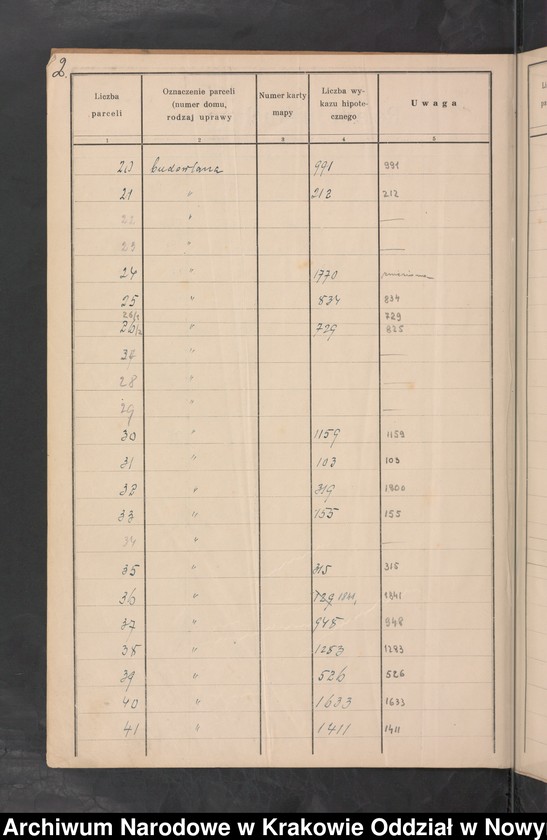 2.
Liczba parceli | Oznaczenie parceli (numer domu, rodzaj uprawy | Numer karty mapy | Liczba wykazu hipotecznego | Uwaga
1 | 2 | 3 | 4 | 5
budowlana | 991 | 991
21 | " | 212 | 212
22 | " | —
23 | " | —
24 | " | 1770
25 | " | 834 | 834
26/1 | 729
26/2 | " | 729 | 825
" | —
28 | " | —
29 | " | —
30 | " | 1159 | 1159
31 | " | 103 | 103
32 | " | 319 | 1800
33 | " | 155 | 155
34 | " | —
35 | " | 315 | 315
36 | " | 729 1841, | 1841
37 | " | 948 | 948
38 | " | 1283 | 1283
39 | " | 526 | 526
40 | " | 1633 | 1633
41 | " | 1411 | 1411
Archiwum Narodowe w Krakowie Oddział w Nowy